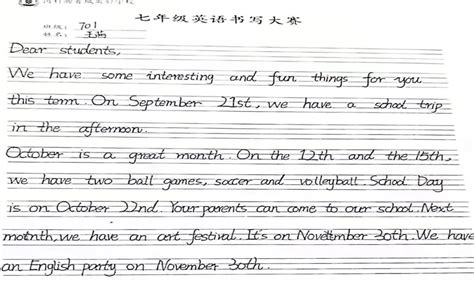 七年级英语书写大赛
班级: 701
姓名:
Dear students,
We have some interesting and fun things for you
this term. On September 21st, we have a school trip
in the afternoon.
October is a great month. On the 12th and the 15th,
we have two ball games, soccer and volleyball. School Day
is on October 22nd. Your parents can come to our school. Next
motnth, we have an art festival. It's on Novetmber 30th. We have
an English party on November 30th.